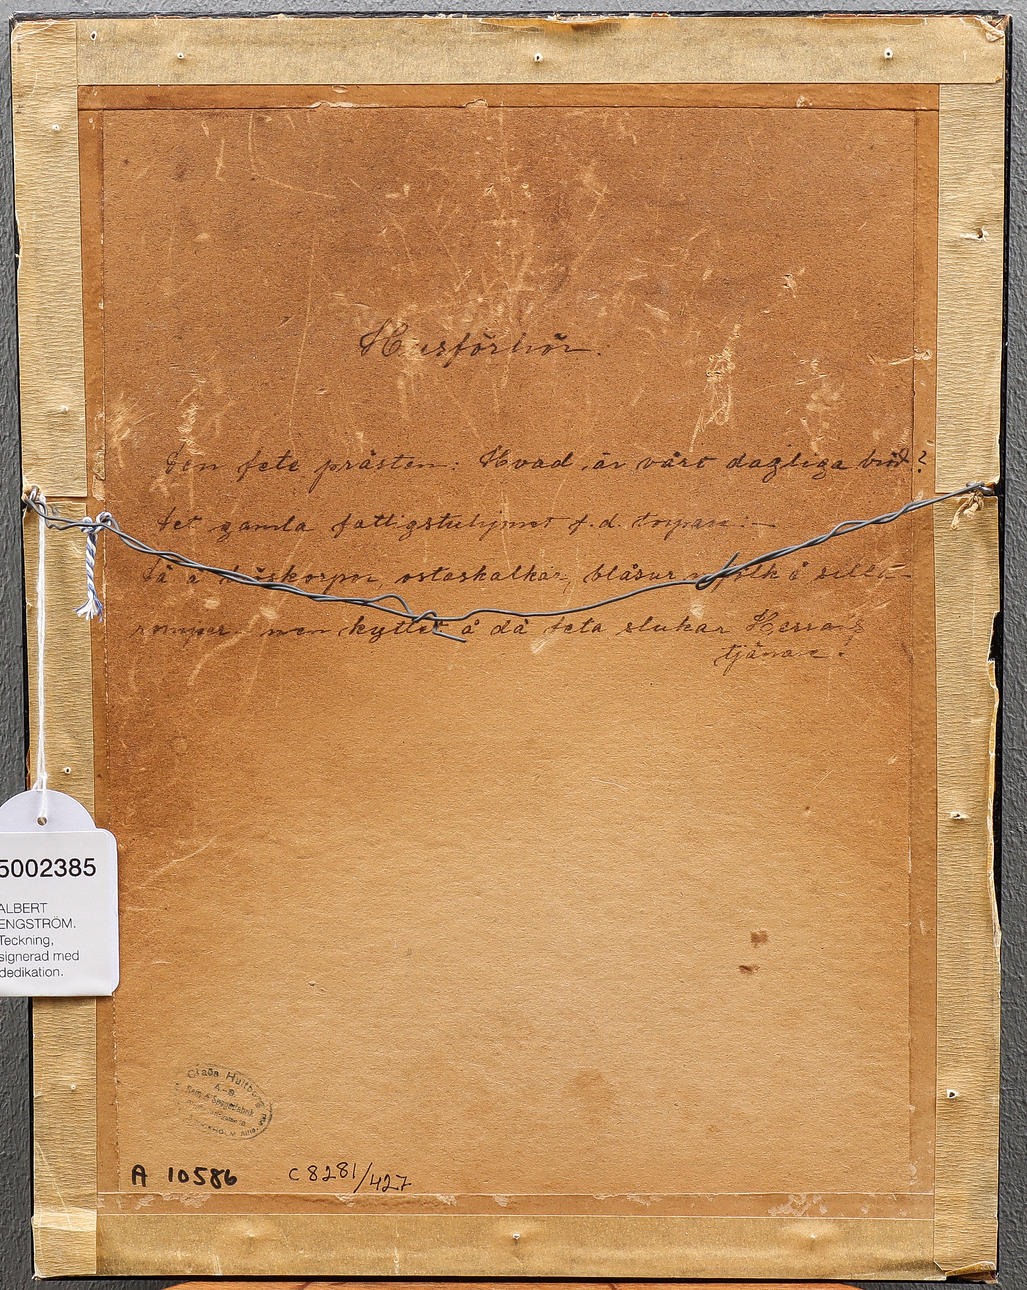 Husförhör.
Den fete prästen: Hvad är vårt dagliga bröd?
Det gamla fattigstuhjonet f.d. torparn:—
Då ä bröskorpor, ostaskalkar, blåsur mjölk å silla-
romper, men kyttet å dä feta slukar Herrans
tjänare!
5002385
ALBERT
ENGSTRÖM.
Teckning,
signerad med
dedikation.
Claës Hultberg
A.-B.
STOCKHOLM
A 10586
C8281/427